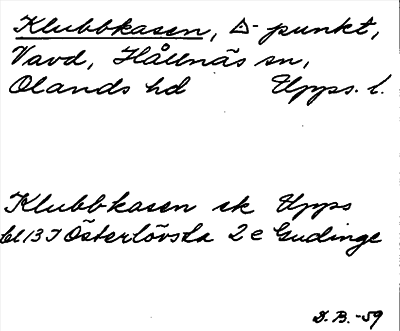 Klubbkasen, △-punkt,
Vavd, Hållnäs sn,
Olands hd Upps. l.
Klubbkasen ek Upps
bl 13 I Österlövsta 2 e Gudinge
D.B. -59